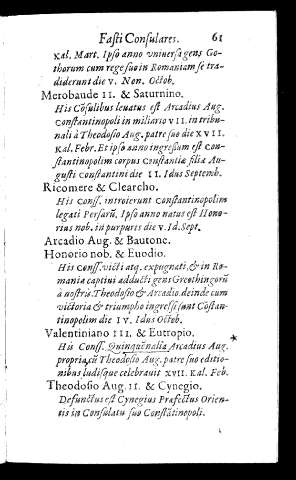 Fasti Consulares. 61
Kal. Mart. Ipso anno vniuersa gens Go-
thorum cum rege suo in Romaniam se tra-
diderunt die V. Non. Octob.
Merobaude II. & Saturnino.
His Cōsulibus leuatus est Arcadius Aug.
Constantinopoli in miliario VII. in tribu-
nali à Theodosio Aug. patre suo die XVII.
Kal. Febr. Et ipso anno ingressum est Con-
stantinopolim corpus Constantiæ filiæ Au-
gusti Constantini die II. Idus Septemb.
Ricomere & Clearcho.
His Conss. introierunt Constantinopolim
legati Persarū. Ipso anno natus est Hono-
rius nob. in purpures die V. Id. Sept.
Arcadio Aug. & Bautone.
Honorio nob. & Euodio.
His Conss. victi atq. expugnati, & in Ro-
mania captiui adducti gens Greothingorū
à nostris Theodosio & Arcadio. deinde cum
victoria & triumpho ingressi sunt Cōstan-
tinopolim die IV. Idus Octob.
Valentiniano III. & Eutropio.
His Conss. Quinquēnalia Arcadius Aug.
propria, cū Theodosio Aug. patre suo editio-
nibus ludisque celebrauit XVII. Kal. Feb.
Theodosio Aug. II. & Cynegio.
Defunctus est Cynegius Præfectus Orien-
tis in Consulatu suo Constātinopoli.